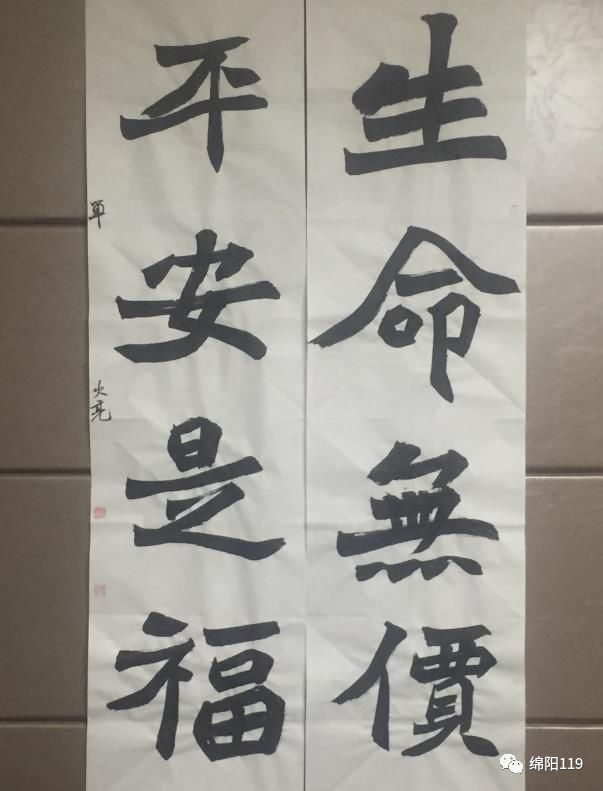 生命無價
平安是福
單
火亮
绵阳119